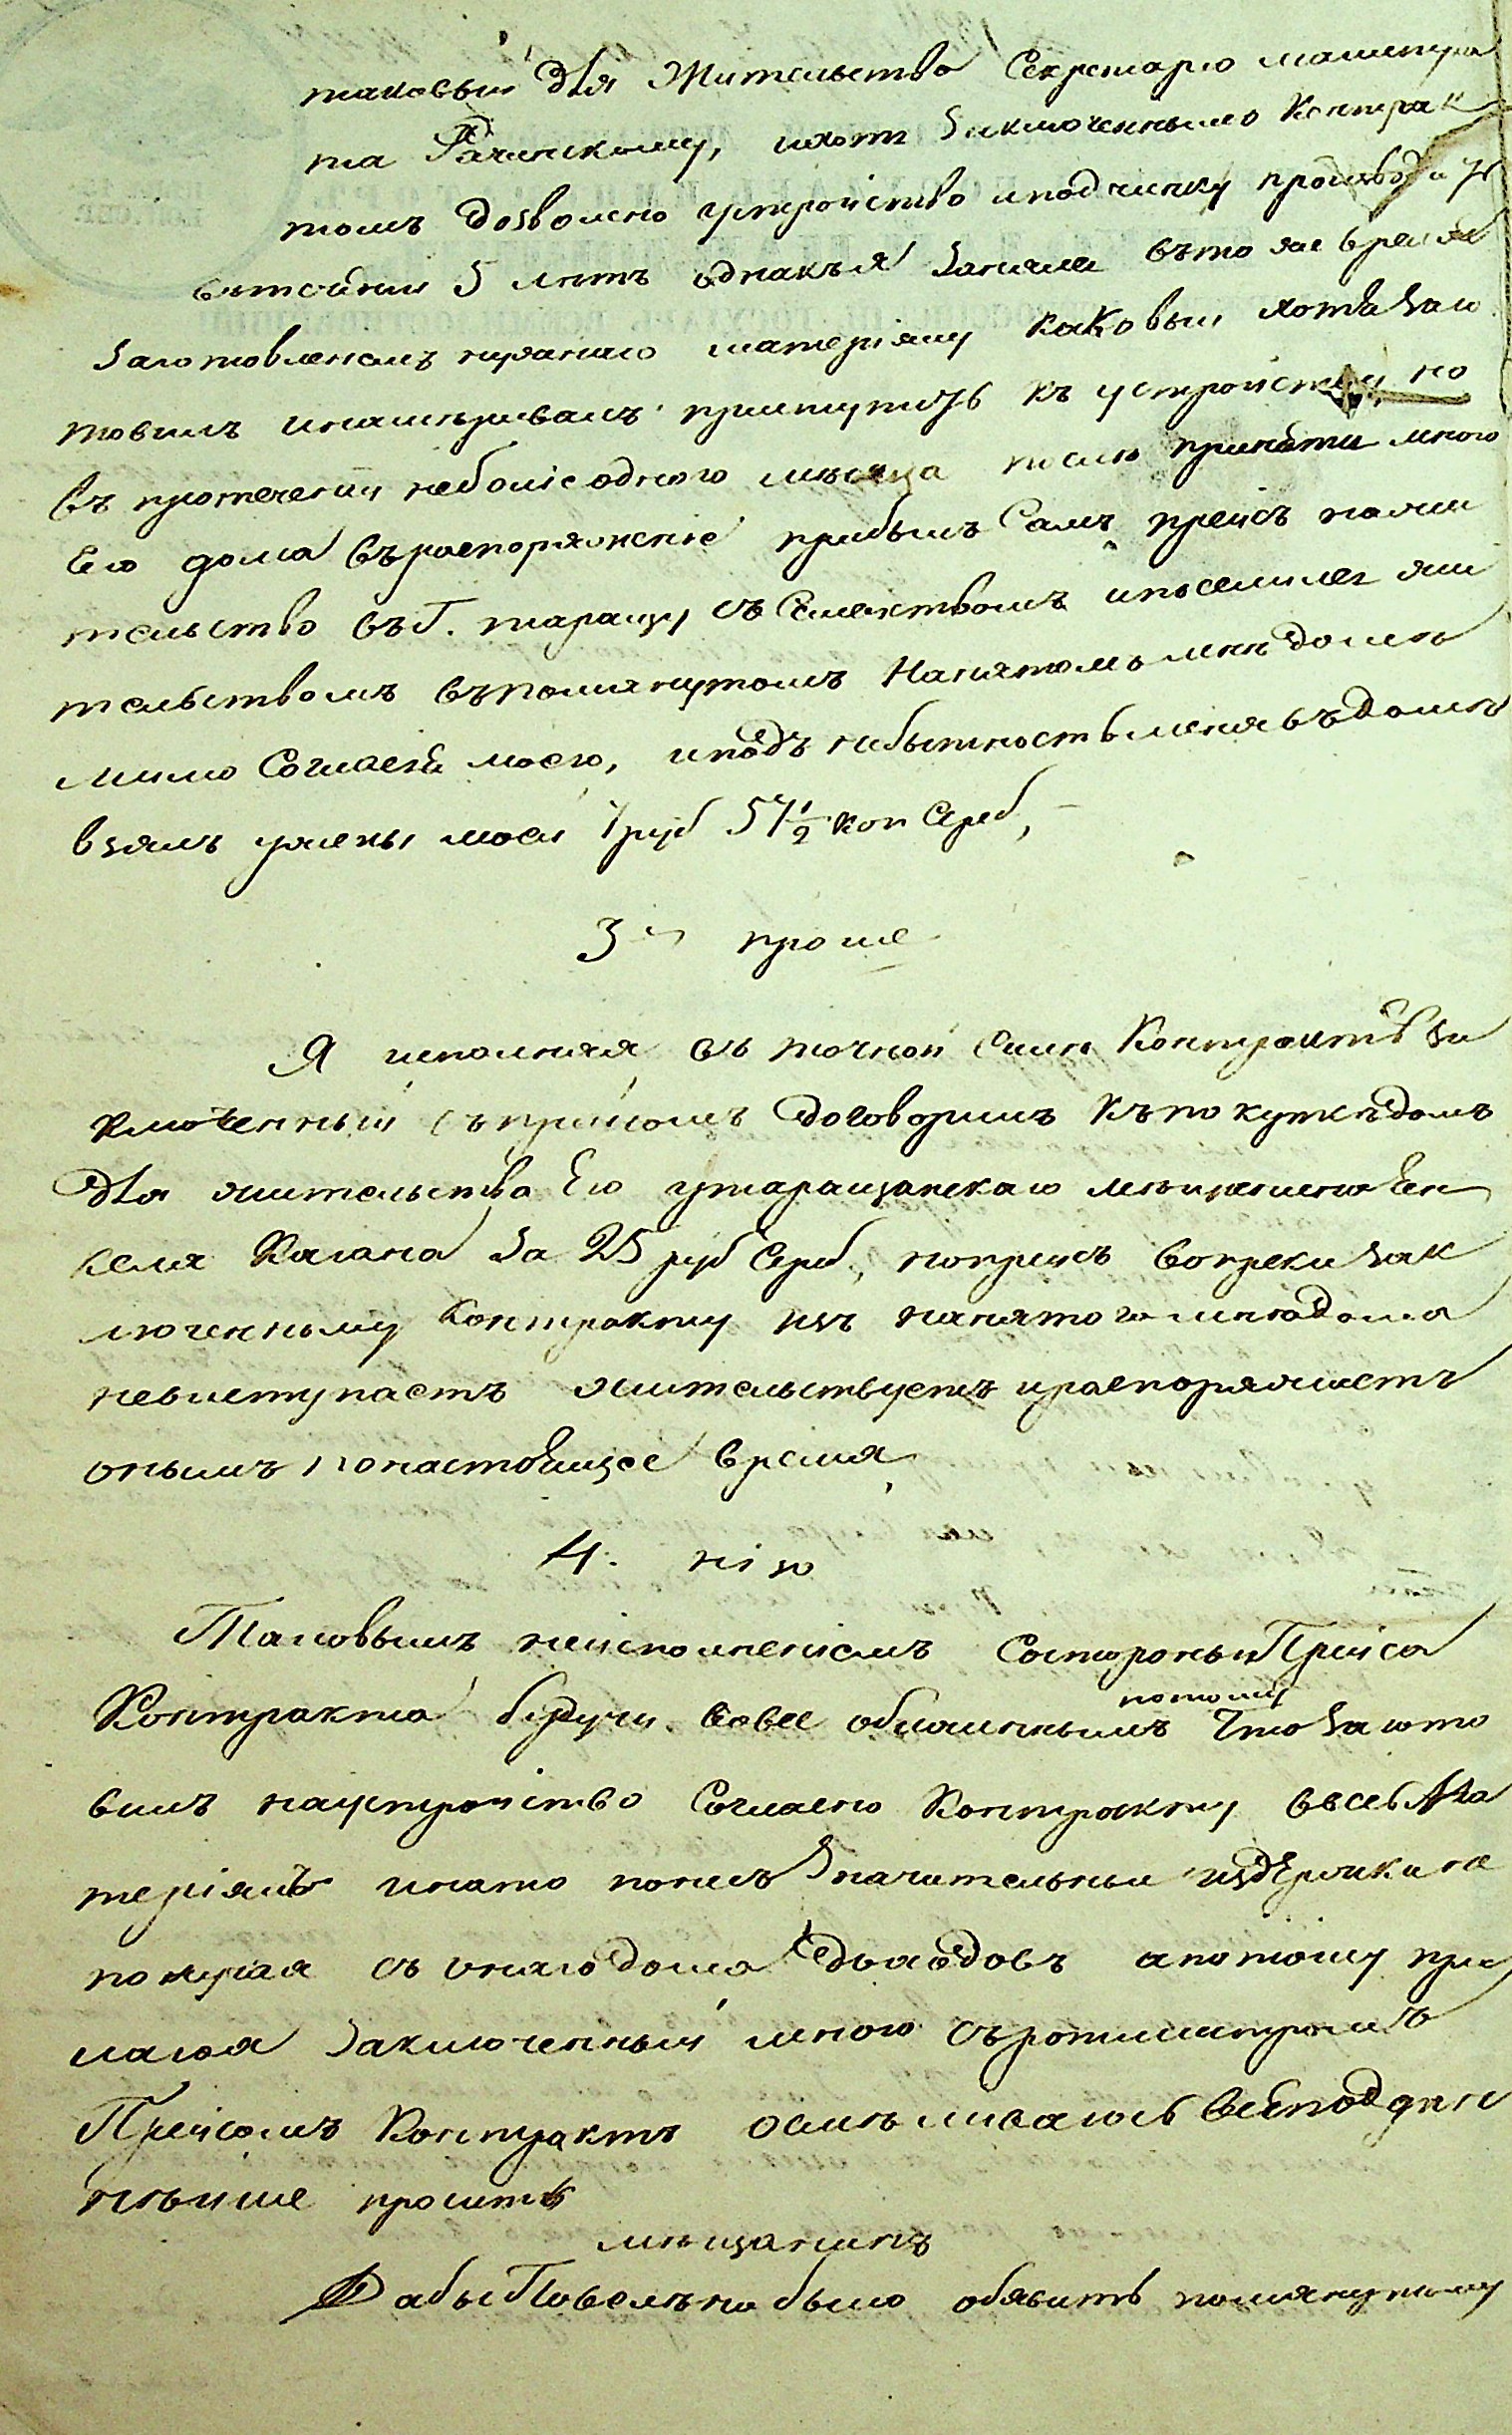 таковый для Жительства Секретарю магистра
та Рачинскому, хотя Заключеннымъ Контрак
томъ дозволено устройство и подчинку производить
въ теченіи 5 летъ однакъ я Занялся въ то же время
Заготовленіемъ нужнаго матеріялу каковый хотя Заго
товилъ и намеривалъ приступить къ устройству, но
въ протечении небольше одного месяца после принятия мною
Его дома въ распоряженіе прибылъ Самъ Прейсъ на жи
тельство въ г. Таращу съ Семействомъ и поселился жи
тельствомъ въ помянутомъ Нанятомъ мне доме
мимо Согласія моего, и подъ небытность меня въ доме
взялъ у жены моей 7 руб 57½ коп Сереб,
3е проше
Я исполняя въ точной силе Контрактъ За
ключенный съ Прейсомъ договоримъ къ покупке домъ
для жительства Его у таращанского мещанина Ен
келя Кагана За 25 руб Сереб, но Прейсъ вопреки Зак
люченному Контракту изъ нанятого мною дома
невыступаетъ жительствуетъ и распоряжаетъ
онымъ по настоящее время,
4. ніцо
Таковымъ неисполненіемъ Состороны Прейса
Контракта будучи вовсе обиженнымъ потому Что Загото
вилъ на устройство Согласно Контракту весь Ма
теріялъ и на то понесъ Значительныя издержки не
получая съ онаго дома доходовъ а потому при
лагая Заключенный мною съ ротмистромъ
Прейсомъ Контрактъ осмеливаюсь Всеподдан
нейше просить
мещанинъ
Дабы Повелено было объявить помянутому